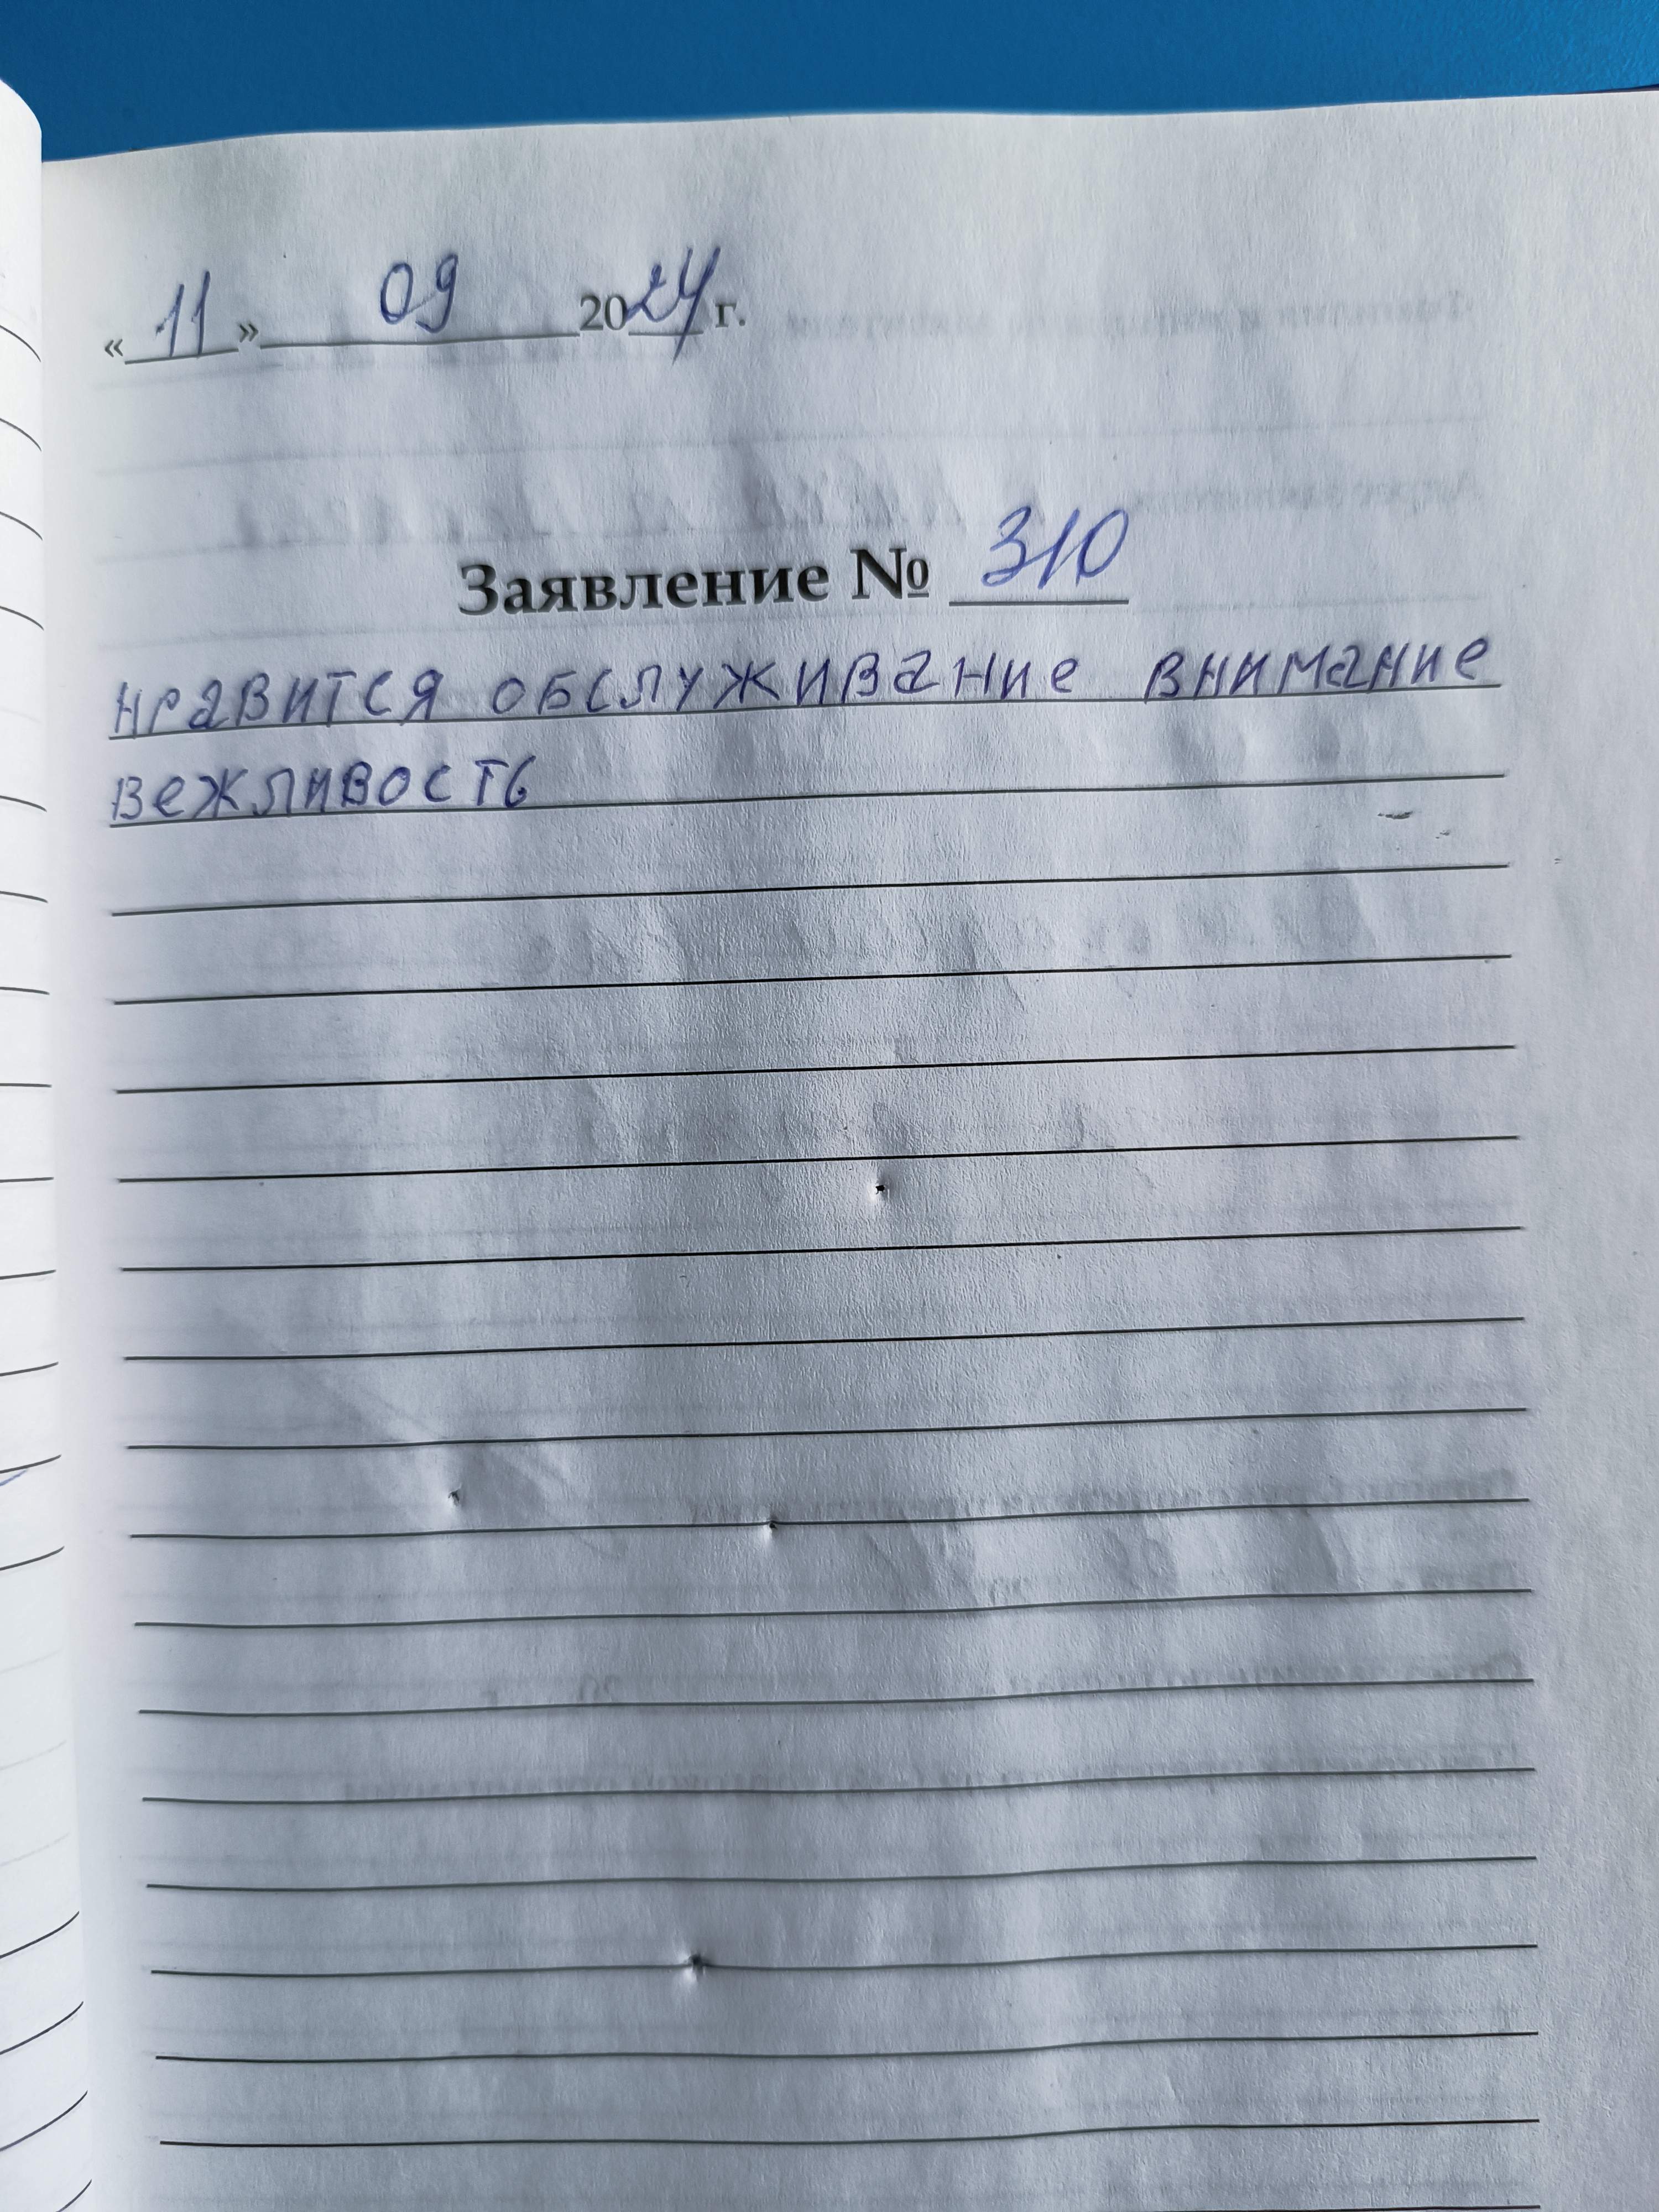 « 11 » 09 2024 г.
Заявление № 310
нравится обслуживание внимание
вежливость